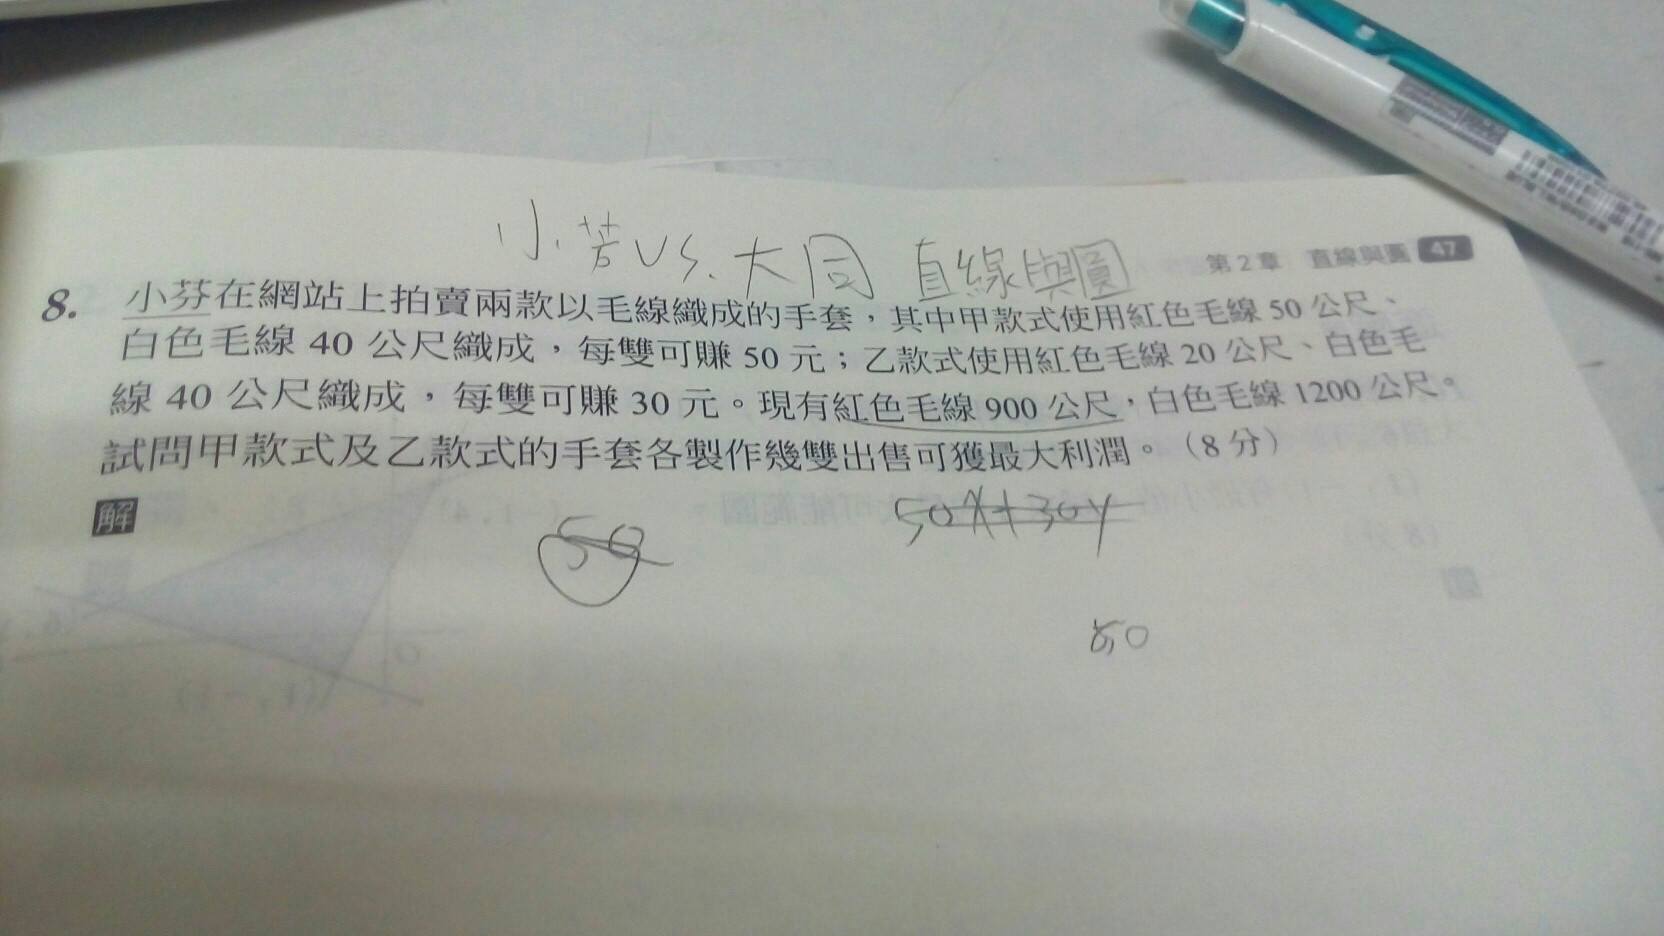 小芬 VS. 大同 直線與圓
第 2 章 直線與圓 47
8. 小芬在網站上拍賣兩款以毛線織成的手套，其中甲款式使用紅色毛線 50 公尺、
白色毛線 40 公尺織成，每雙可賺 50 元；乙款式使用紅色毛線 20 公尺、白色毛
線 40 公尺織成，每雙可賺 30 元。現有紅色毛線 900 公尺，白色毛線 1200 公尺。
試問甲款式及乙款式的手套各製作幾雙出售可獲最大利潤。（8 分）
解
50
50X+30y
50